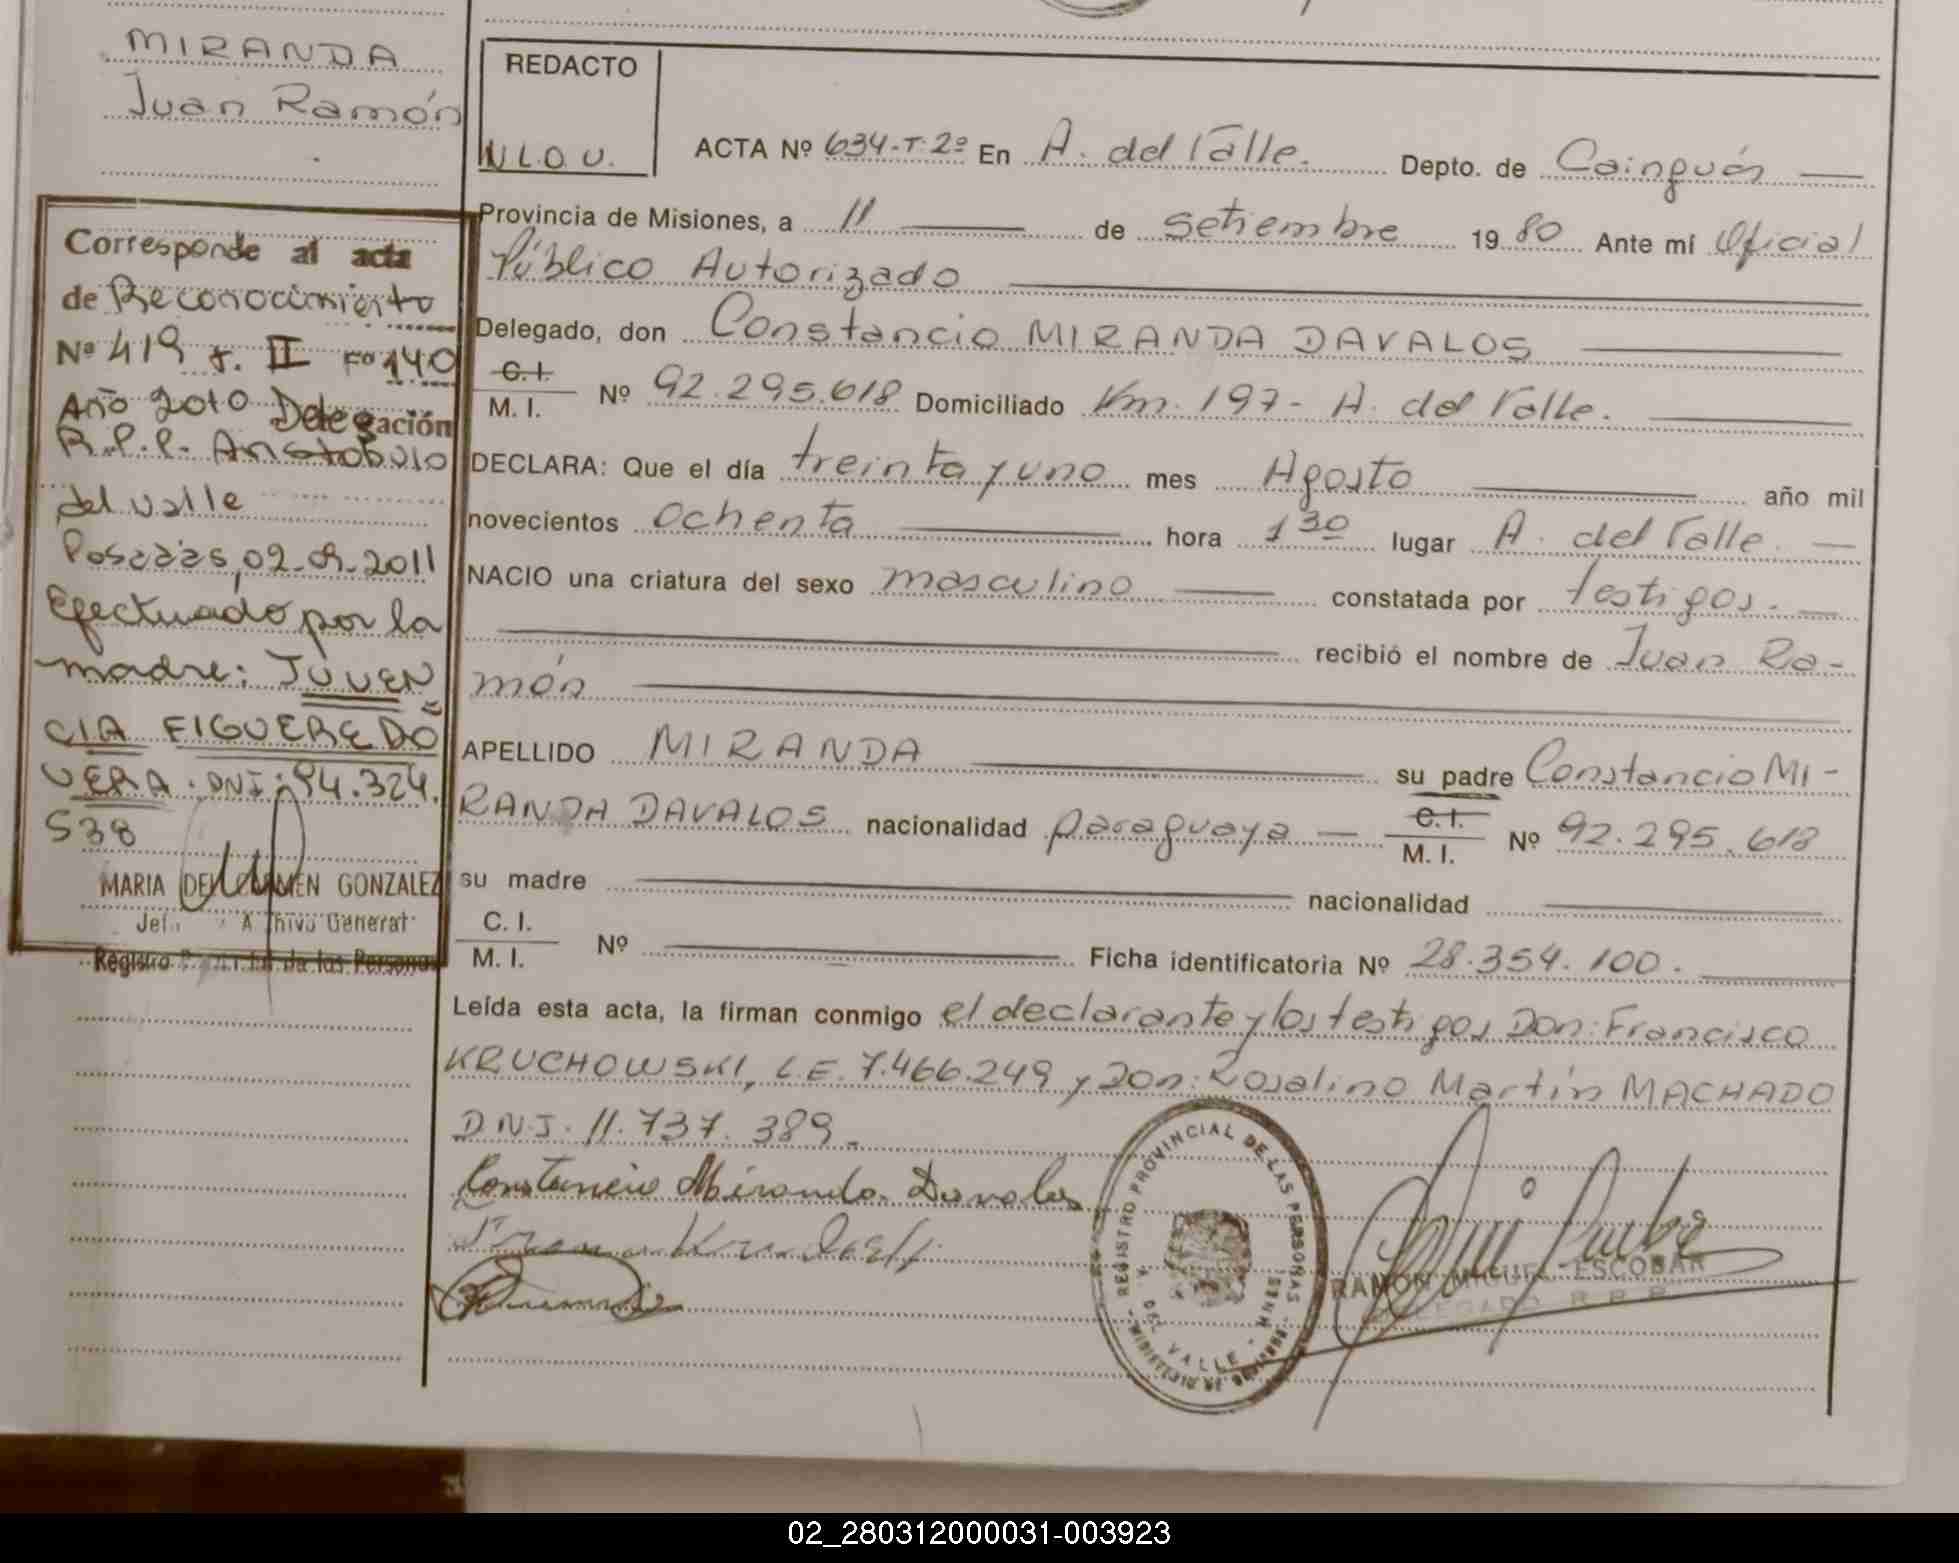 MIRANDA
Juan Ramón
Corresponde al acta
de Reconocimiento
Nº 419 T. II Fº 140
Año 2010 Delegación
R.P.P. Aristobulo
del valle
Posadas, 02-09-2011
Efectuado por la
madre: JUVEN
CIA FIGUEREDO
VERA. DNI: 94.324.
538
MARIA DEL CARMEN GONZALEZ
Archivo General
Registro de las Personas
REDACTO
N.L.O.U.
ACTA Nº 634-T-2º En A. del Valle. Depto. de Cainguás
Provincia de Misiones, a 11 de setiembre 1980 Ante mí Oficial
Público Autorizado
Delegado, don Constancio MIRANDA DAVALOS
C.I.
M. I. Nº 92.295.618 Domiciliado Km. 197- A. del Valle.
DECLARA: Que el día treinta y uno mes Agosto año mil
novecientos ochenta hora 1 30 lugar A. del Valle.
NACIO una criatura del sexo masculino constatada por testigos.
recibió el nombre de Juan Ra-
món
APELLIDO MIRANDA su padre Constancio MI-
RANDA DAVALOS nacionalidad paraguaya C.I. M. I. Nº 92.295.618
su madre nacionalidad
C. I.
M. I. Nº Ficha identificatoria Nº 28.354.100.
Leída esta acta, la firman conmigo el declarante y los testigos Don: Francisco
KRUCHOWSKI, L.E. 7.466.249 y Don: Rosalino Martín MACHADO
D.N.I. 11.737.389.
Constancio Miranda Davalos
REGISTRO PROVINCIAL DE LAS PERSONAS
A. DEL VALLE
RAMON MIGUEL ESCOBAR
DELEGADO R.P.P.
02_280312000031-003923